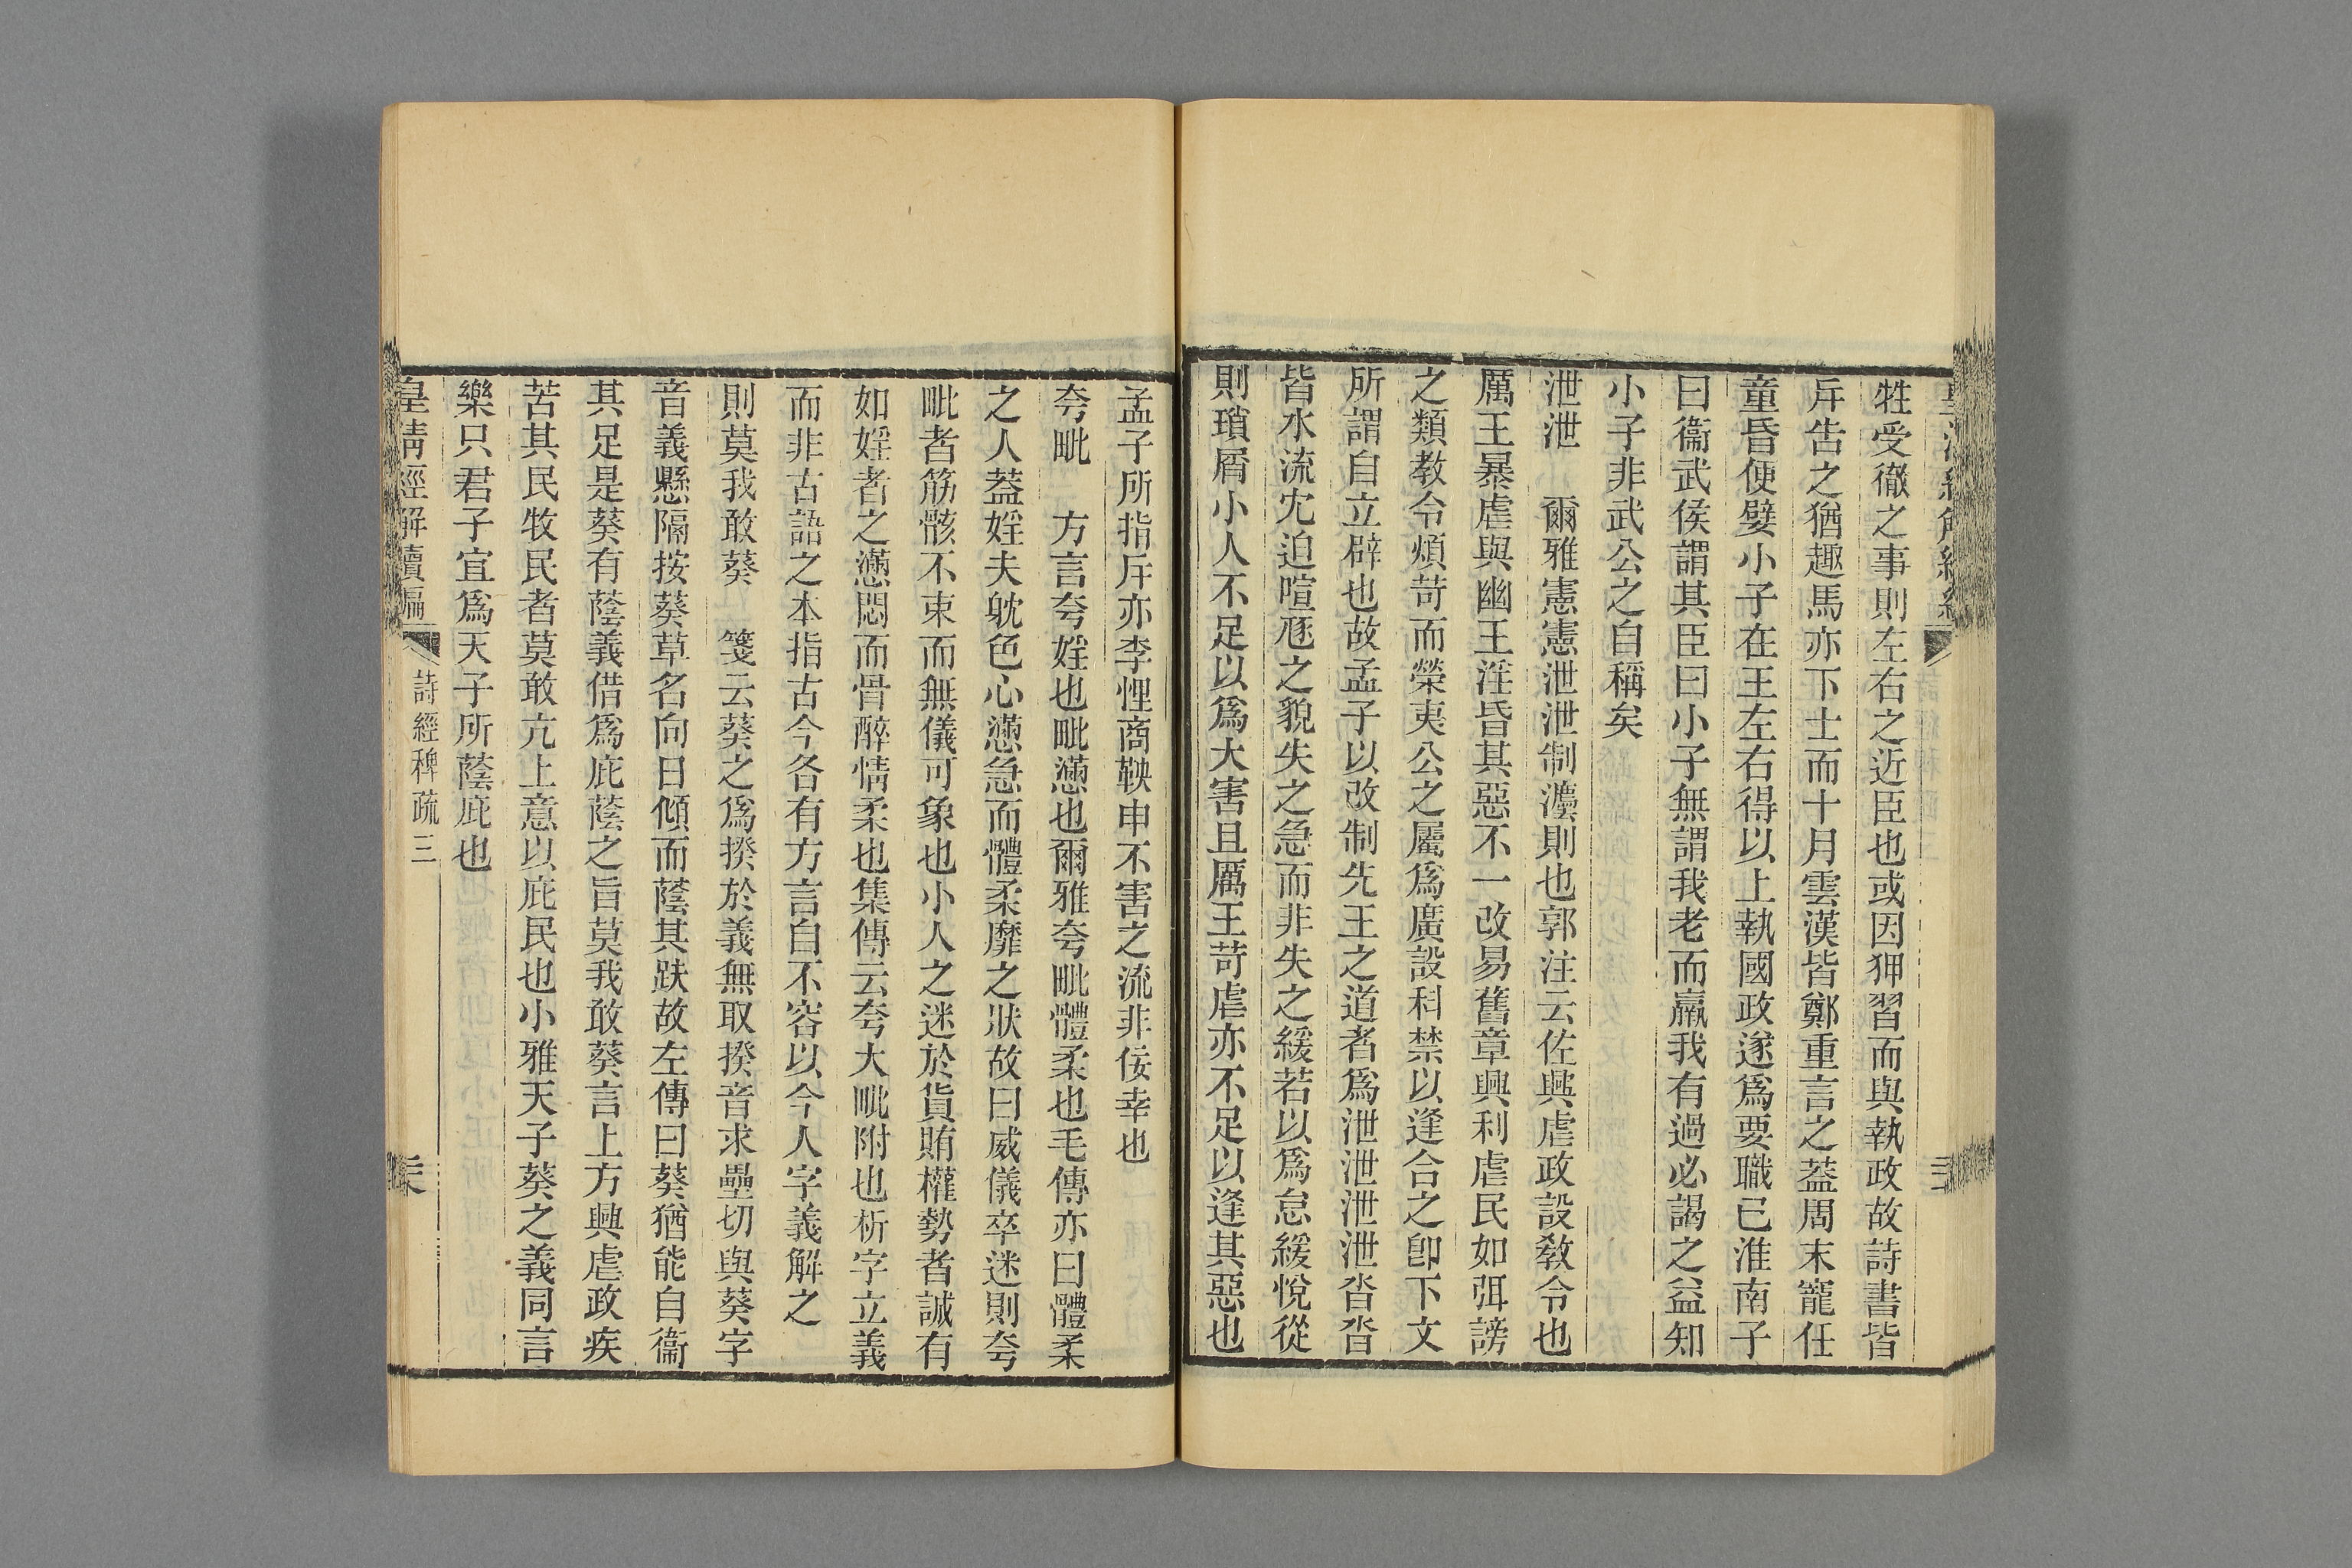 牲受徹之事則左右之近臣也或因狎習而與執政故詩書皆
斥告之猶趣馬亦下士而十月雲漢皆鄭重言之蓋周末寵任
童昏便嬖小子在王左右得以上執國政遂爲要職已淮南子
曰衞武侯謂其臣曰小子無謂我老而羸我有過必謁之益知
小子非武公之自稱矣
泄泄　爾雅憲憲泄泄制灋則也郭注云佐興虐政設敎令也
厲王暴虐與幽王淫昏其惡不一改易舊章興利虐民如弭謗
之類教令煩苛而榮夷公之屬爲廣設科禁以逢合之卽下文
所謂自立辟也故孟子以改制先王之道者爲泄泄泄泄沓沓
皆水流宂迫喧豗之貌失之急而非失之緩若以爲怠緩悅從
則瑣屑小人不足以爲大害且厲王苛虐亦不足以逢其惡也
孟子所指斥亦李悝商鞅申不害之流非佞幸也
夸毗　方言夸婬也毗懣也爾雅夸毗體柔也毛傳亦曰體柔
之人蓋婬夫躭色心懣急而體柔靡之狀故曰威儀卒迷則夸
毗者筋骸不束而無儀可象也小人之迷於貨賄權勢者誠有
如婬者之懣悶而骨醉情柔也集傳云夸大毗附也析字立義
而非古語之本指古今各有方言自不容以今人字義解之
則莫我敢葵　箋云葵之爲揆於義無取揆音求壘切與葵字
音義懸隔按葵草名向日傾而蔭其趺故左傳曰葵猶能自衞
其足是葵有蔭義借爲庇蔭之旨莫我敢葵言上方興虐政疾
苦其民牧民者莫敢亢上意以庇民也小雅天子葵之義同言
樂只君子宜爲天子所蔭庇也
皇清經解續編
詩經稗疏三